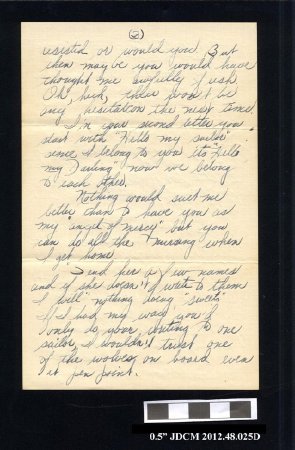 6
resisted or would you. But
then maybe you would have
thought me awfully fresh
Oh, kid, there won't be
any hesitation the next time.
In your second letter you
start with "Hello my sailor"
since I belong to you its "Hello
my Darling" now we belong
to each other.
Nothing would suit me
better than to have you as
my angel of mercy but you
can do all the "nursing" when
I get home.
Send her a few names
and if she doesn't write to them
I will "nothing doing" "sweets".
If I had my way you'd
only to your, writing to one
sailor, I wouldn't trust one
of the wolves on board even
at pen point.
0.5" JDCM 2012.48.025D